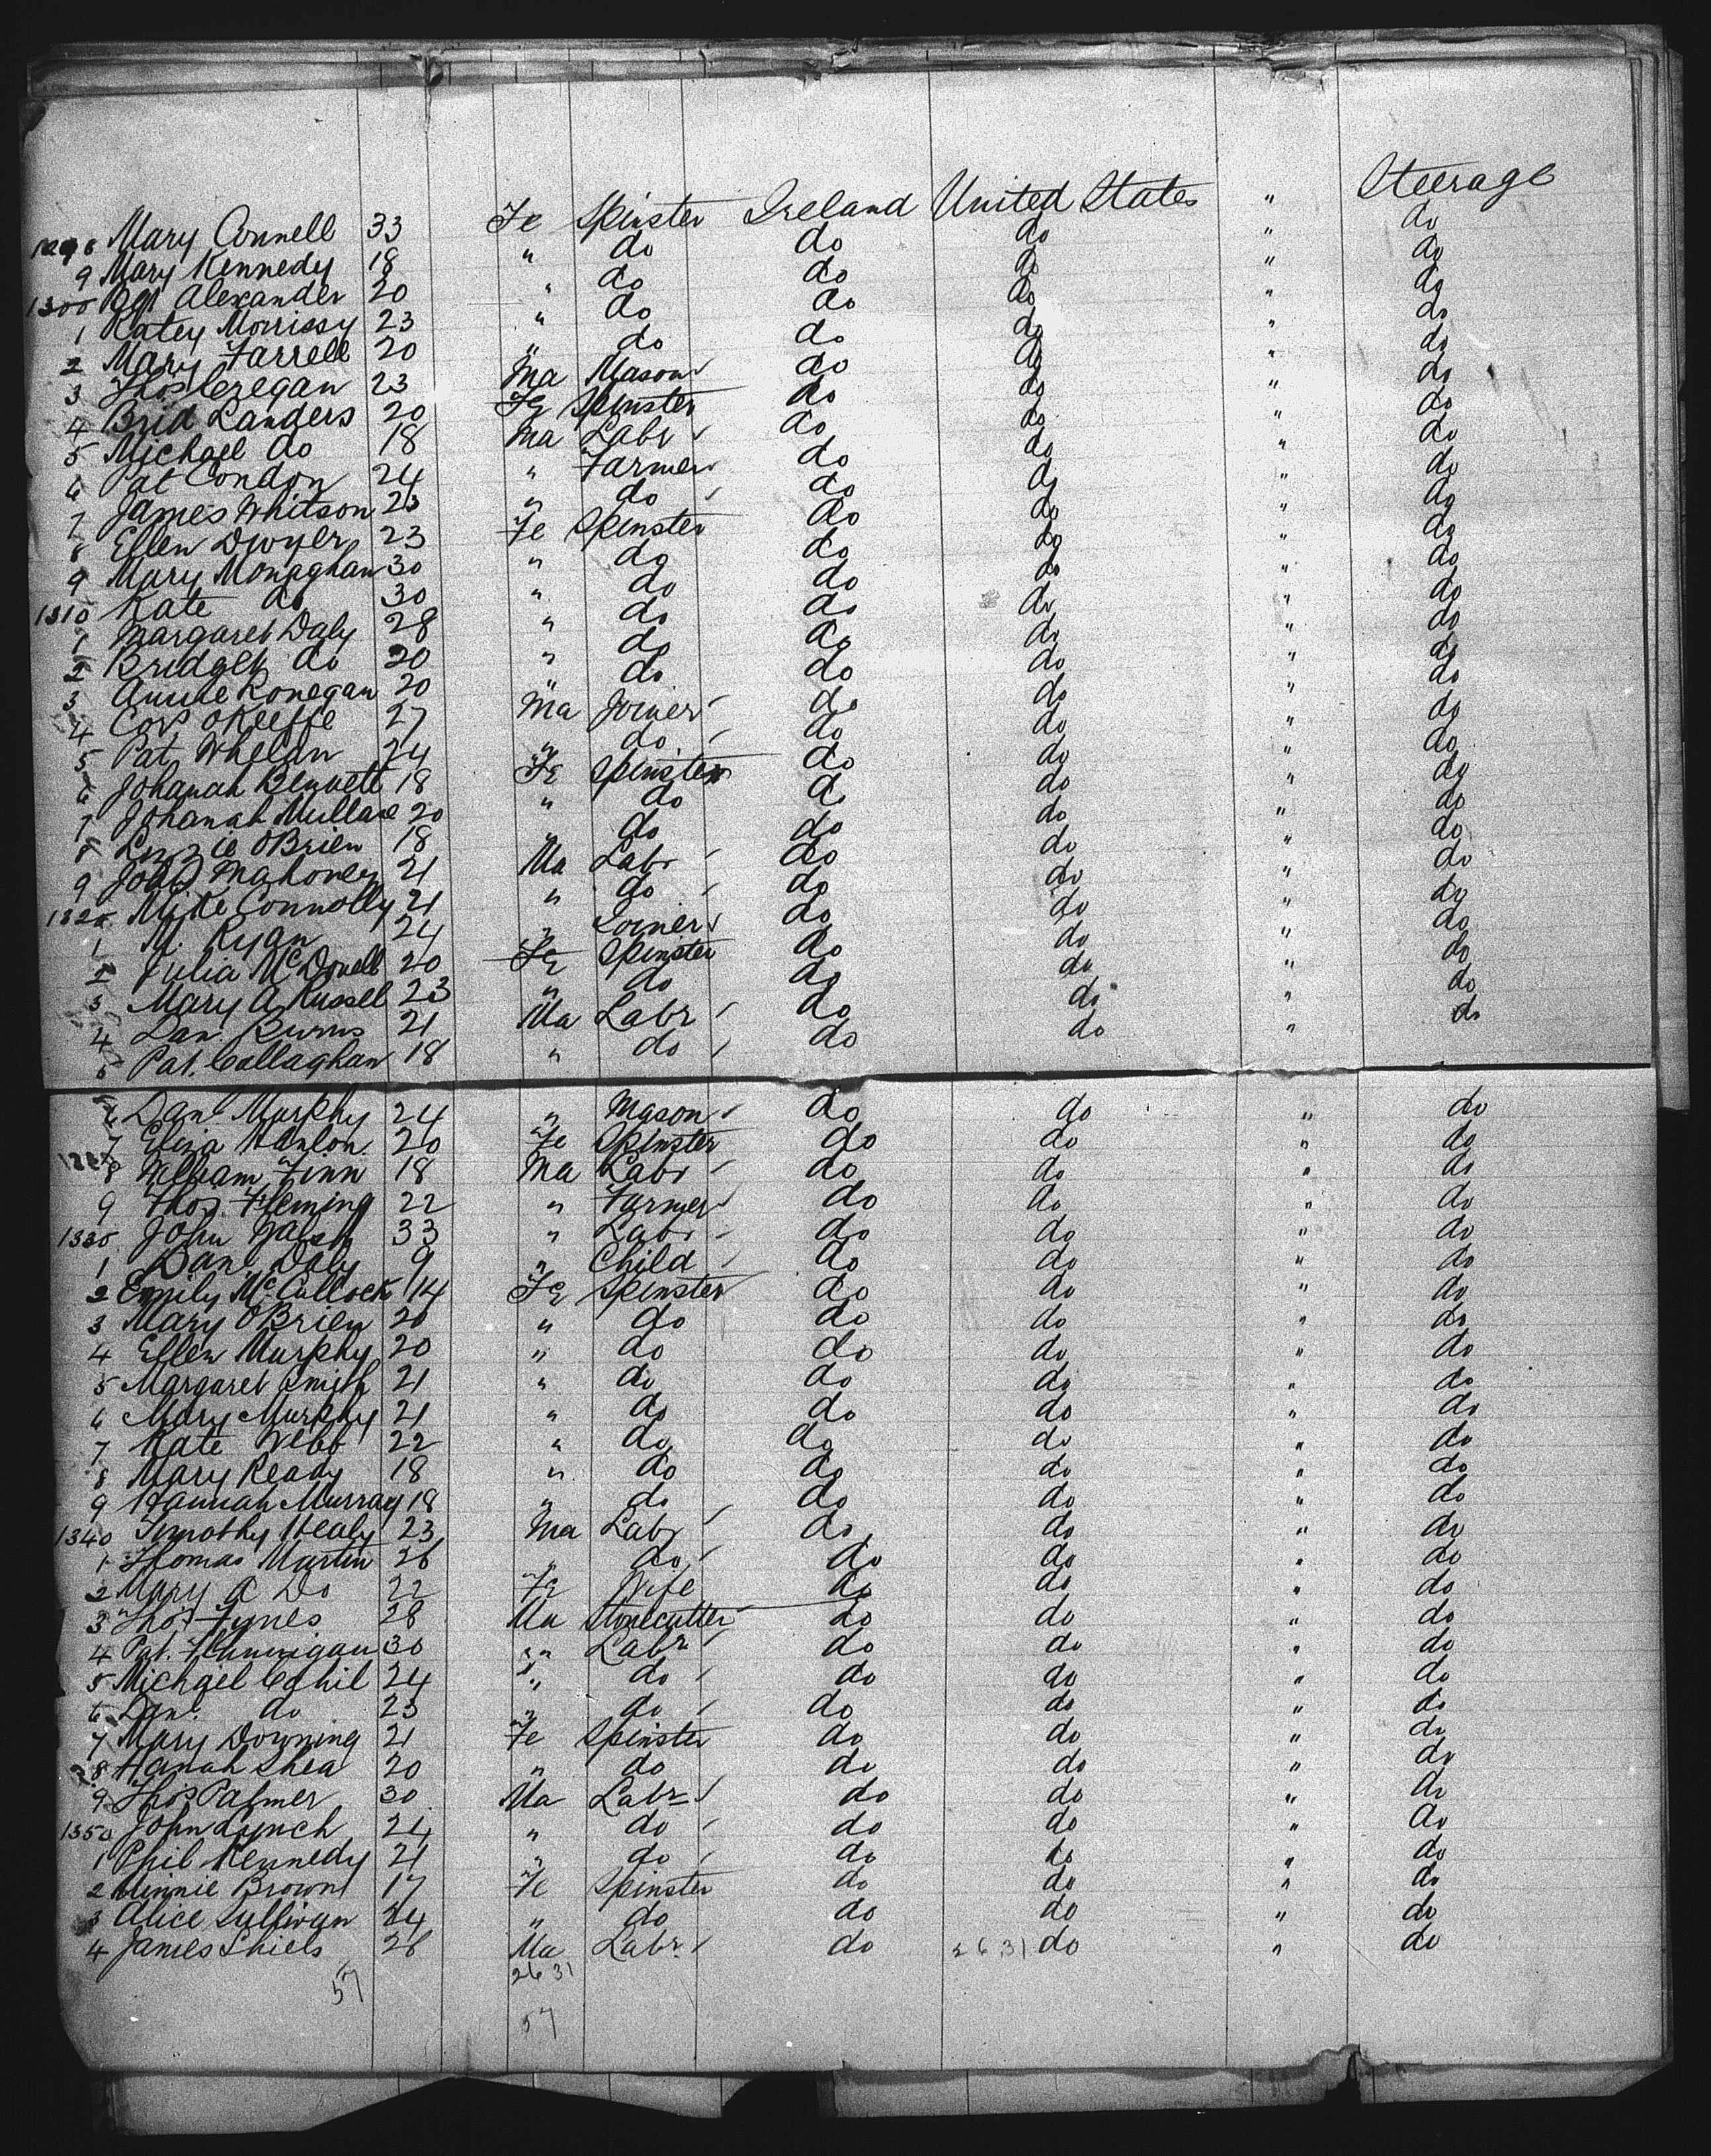 1298 Mary Connell 33 Fe Spinster Ireland United States " Steerage
9 Mary Kennedy 18 " do do do " do
1300 Agt Alexander 20 " do do do " do
1 Katey Morrissy 23 " do do do " do
2 Mary Farrell 20 " do do do " do
3 Thos 23 Ma Mason do do " do
4 Brid Landers 20 Fe Spinster do do " do
5 Michael do 18 Ma Labr do do " do
6 Pat Condon 24 " Farmer do do " do
7 James Whitson 23 " do do do " do
8 Ellen Dwyer 23 Fe Spinster do do " do
9 Mary Monaghan 30 " do do do " do
1310 Kate do 30 " do do do " do
1 Margaret Daly 28 " do do do " do
2 Bridget do 20 " do do do " do
3 Annie Ronegan 20 " do do do " do
4 Cors OKeeffe 27 Ma Joiner do do " do
5 Pat Whelan 24 " do do do " do
6 Johanah Bennett 18 Fe Spinster do do " do
7 Johanah Mullane 20 " do do do " do
8 Lizzie OBrien 18 " do do do " do
9 John Mahoney 21 Ma Labr do do " do
1320 Mike Connolly 21 " do do do " do
1 M. Ryan 24 " Joiner do do " do
2 Julia McDonell 20 Fe Spinster do do " do
3 Mary A Russell 23 " do do do " do
4 Dan. Burns 21 Ma Labr do do " do
5 Pat. Callaghan 18 " do do do " do
6 Danl Murphy 24 " Mason do do " do
7 Eliza Hanlon 20 Fe Spinster do do " do
8 William Finn 18 Ma Labr do do " do
9 Thos. Fleming 22 " Farmer do do " do
1330 John Walsh 33 " Labr do do " do
1 Danl Daly 9 " Child do do " do
2 Emily McCullock 14 Fe Spinster do do " do
3 Mary OBrien 20 " do do do " do
4 Ellen Murphy 20 " do do do " do
5 Margaret Smyth 21 " do do do " do
6 Mary Murphy 21 " do do do " do
7 Kate Webb 22 " do do do " do
8 Mary Ready 18 " do do do " do
9 Hannah Murray 18 " do do do " do
1340 Timothy Healy 23 Ma Labr do do " do
1 Thomas Martin 26 " do do do " do
2 Mary A Do 22 Fe Wife do do " do
3 Thos Fynes 28 Ma Stonecutter do do " do
4 Pat. Flannigan 30 " Labr do do " do
5 Michael Cahil 24 " do do do " do
6 Dan. do 23 " do do do " do
7 Mary Downing 21 Fe Spinster do do " do
8 Hanah Shea 20 " do do do " do
9 Thos Palmer 30 Ma Labr do do " do
1350 John Lynch 24 " do do do " do
1 Phil Kennedy 21 " do do do " do
2 Minnie Brown 17 Fe Spinster do do " do
3 Alice Sullivan 24 " do do do " do
4 James Shiels 26 Ma Labr do 2631 do " do
57 2631
57